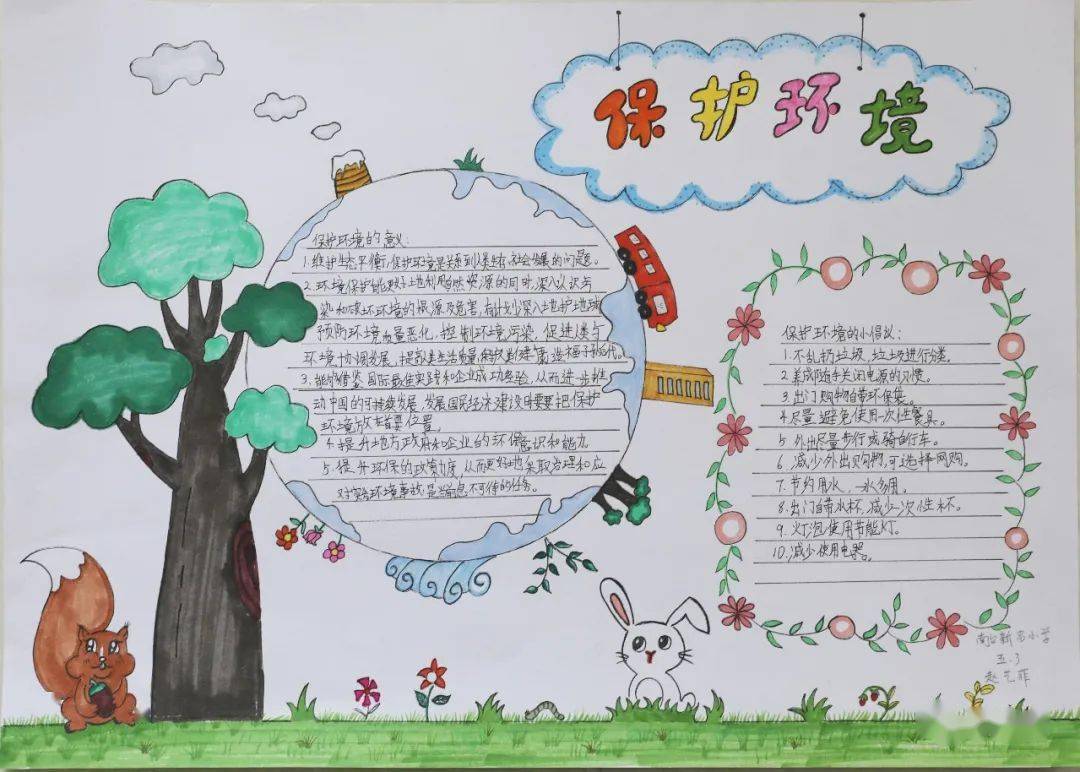 保护环境
保护环境的意义:
1.维护生态平衡,保护环境是关系到人类生存,社会发展的问题。
2.环境保护能够好地利用自然资源的同时,深入认识与
染和破坏环境的根源及危害,有计划深入地护地球
预防环境质量恶化,控制环境污染,促进人类与
环境协调发展,提高人类生活质量,
3.能够借鉴国际最佳实践和企业成功经验,从而进一步推
动中国的可持续发展,发展国民经济建设时要把保护
环境放在首要位置。
4.提升地方政府和企业的环保意识和能力
5.提升环保的政策力度,从而更好地采取办理和应
对突发环境事故是当急不可待的任务。
保护环境的小倡议:
1.不乱扔垃圾,垃圾进行分类。
2.养成随手关闭电源的习惯。
3.出门购物自带环保袋。
4.尽量避免使用一次性餐具。
5.外出尽量步行或骑自行车。
6.减少外出购物,可选择网购。
7.节约用水,一水多用。
8.出门自带水杯,减少一次性杯。
9.灯泡使用节能灯。
10.减少使用电器。
小学
五.3
赵艺菲